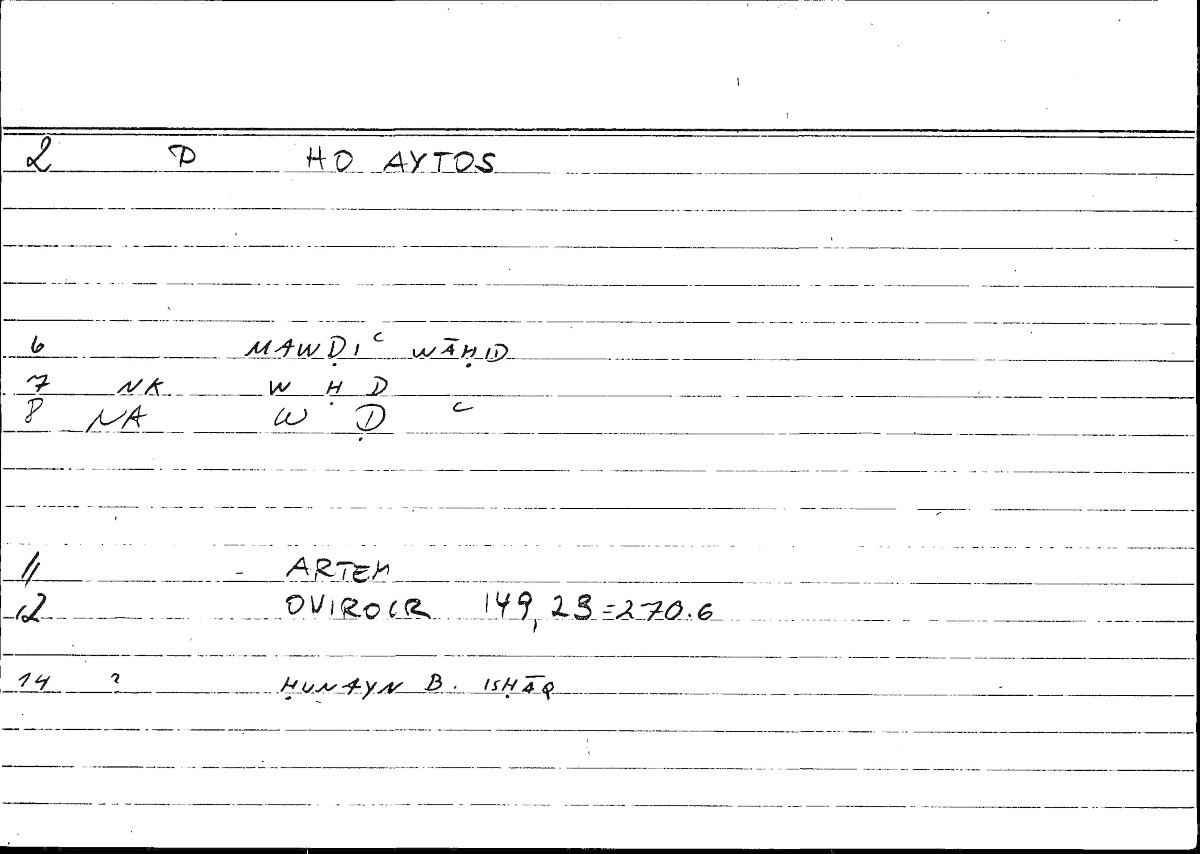 2 P HO AYTOS
6 MAWḌIᶜ WĀḤID
7 NK W Ḥ D
8 NA W Ḍ ᶜ
11 - ARTEM
12 OVIROCR 149, 23=270.6
14 ? ḤUNAYN B. ISḤĀQ